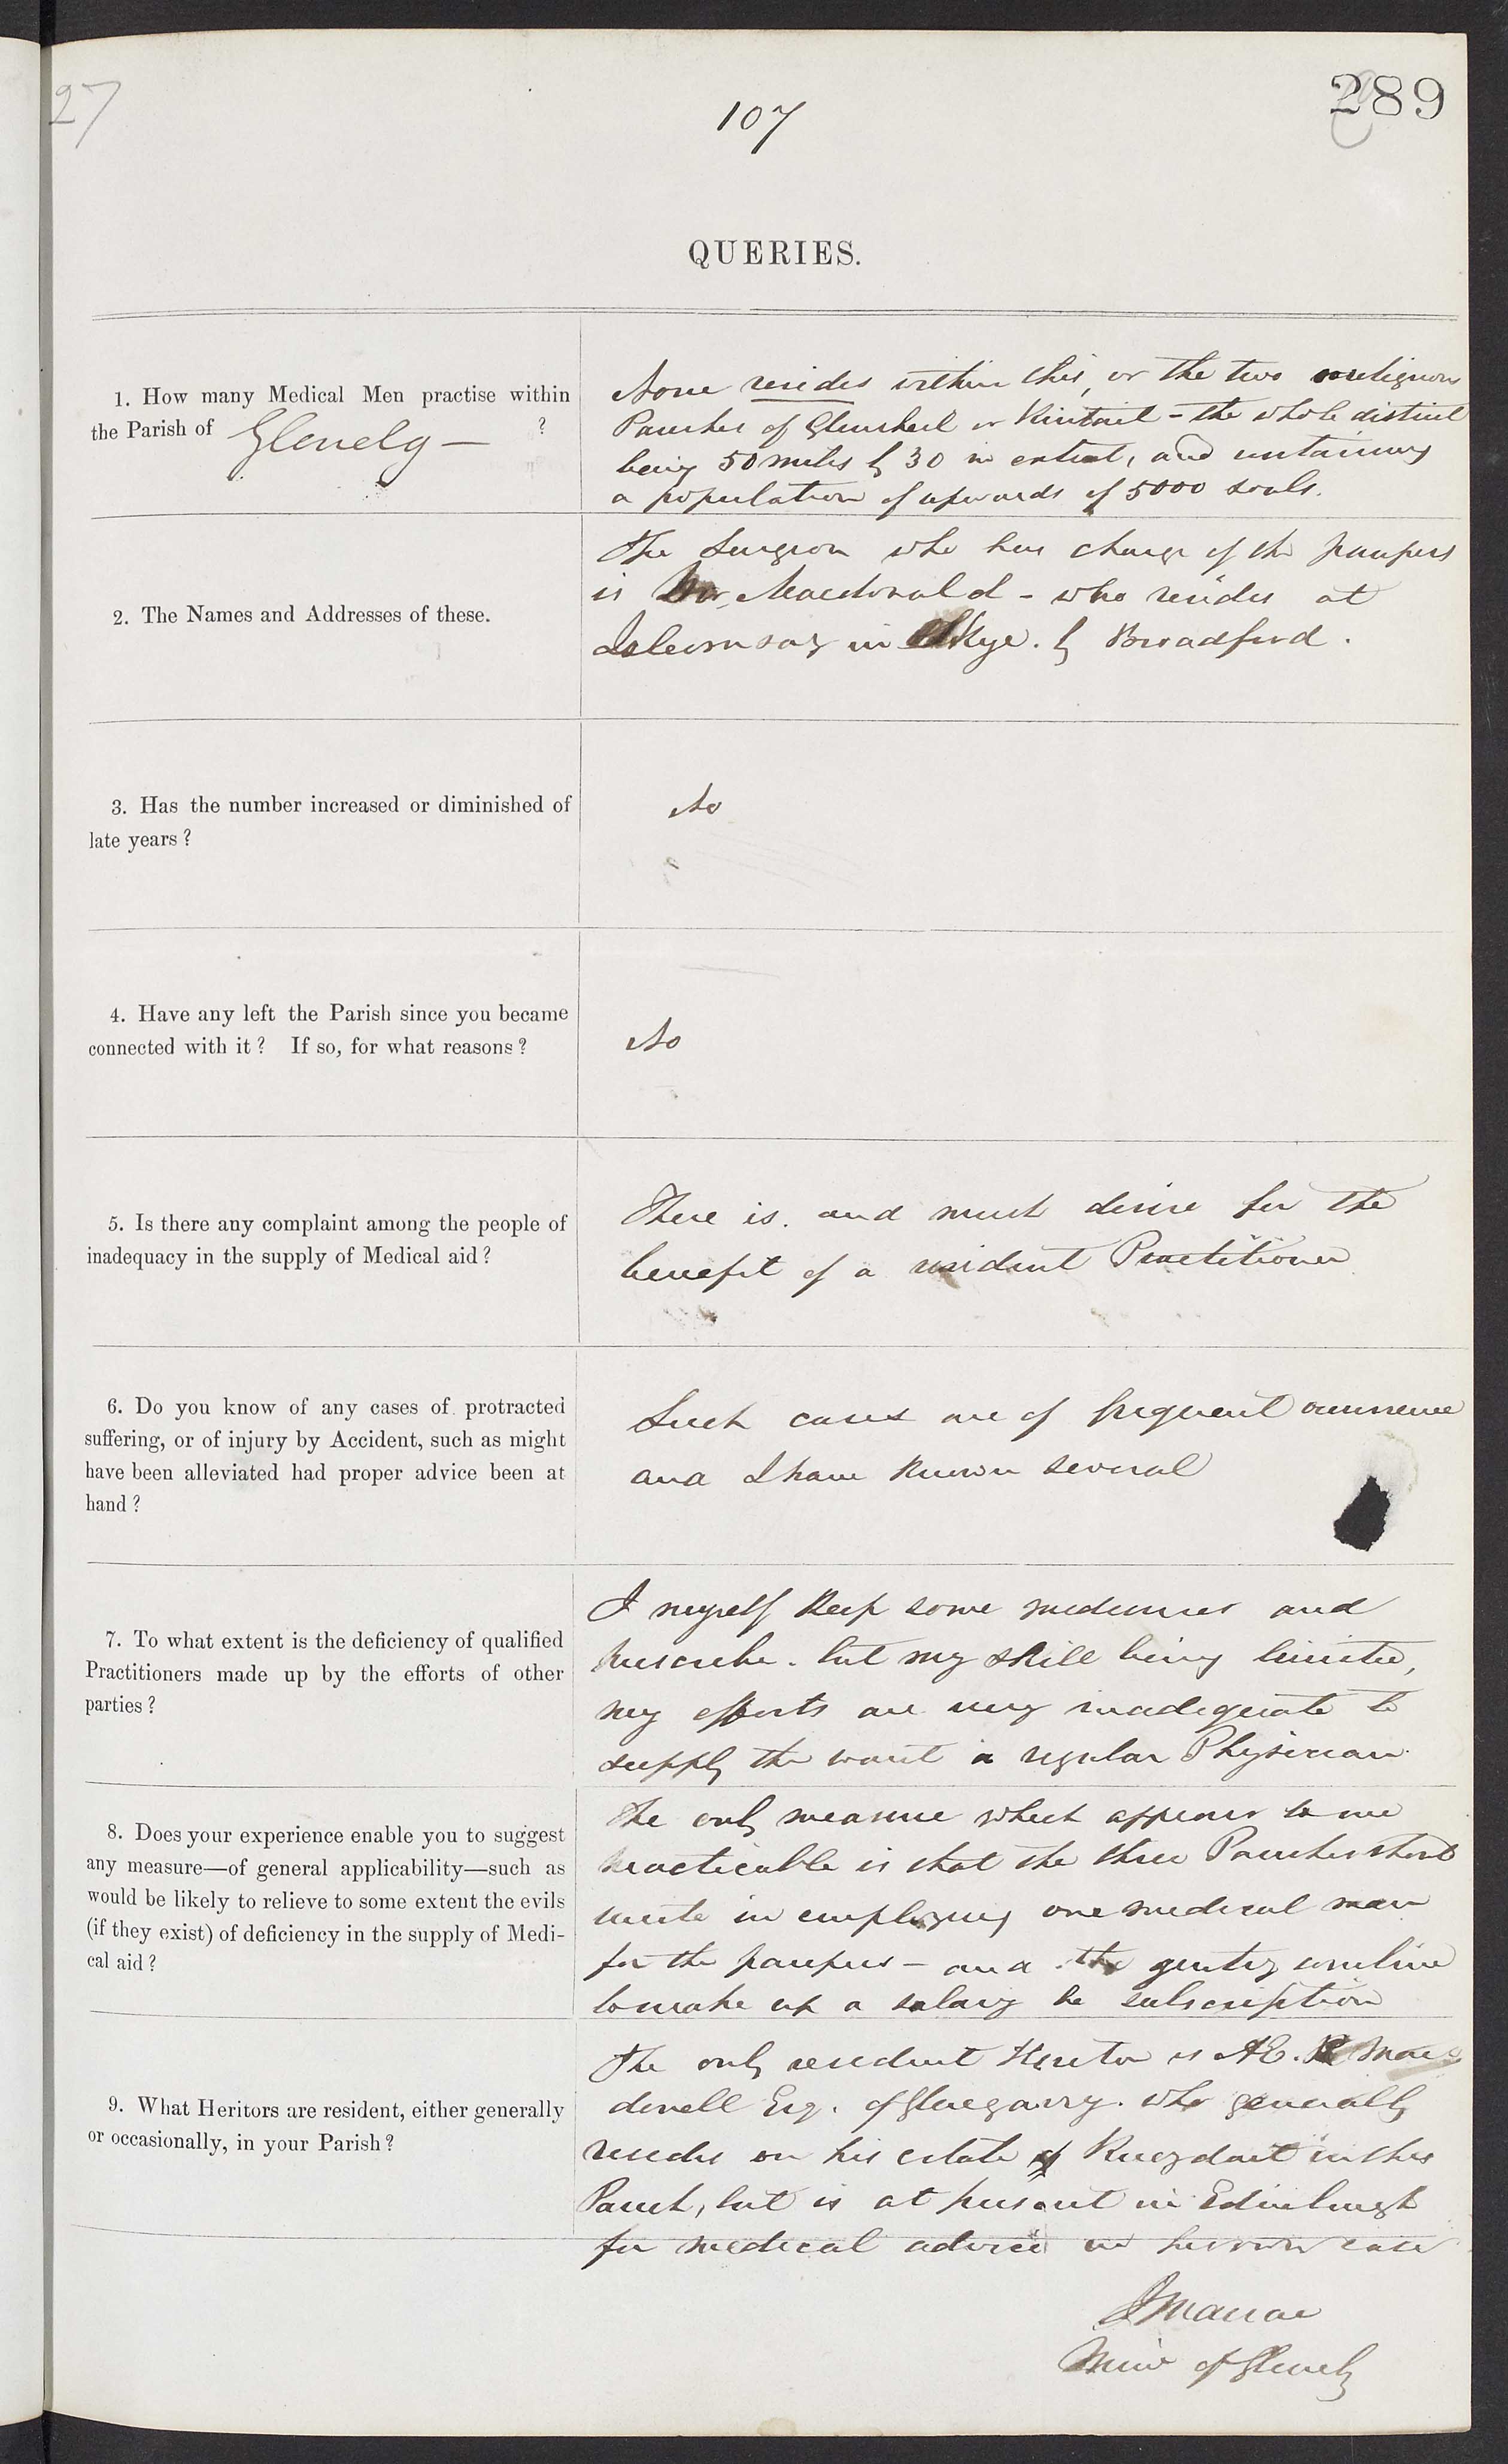 27
107
289
QUERIES.
1. How many Medical Men practise within
the Parish of Glenelg — ?
None resides within this, or the two contiguous
Parishes of Glensheil or Kintail - the whole district
being 50 miles by 30 in extent, and containing
a population of upwards of 5000 souls.
2. The Names and Addresses of these.
The Surgeon who has charge of the paupers
is Dr. Macdonald - who resides at
Isleornsay in Skye. by Broadford.
3. Has the number increased or diminished of
late years ?
No
4. Have any left the Parish since you became
connected with it ? If so, for what reasons ?
No
5. Is there any complaint among the people of
inadequacy in the supply of Medical aid ?
There is. and much desire for the
benefit of a resident Practitioner
6. Do you know of any cases of protracted
suffering, or of injury by Accident, such as might
have been alleviated had proper advice been at
hand ?
Such cases are of frequent occurrence
and I have known several
7. To what extent is the deficiency of qualified
Practitioners made up by the efforts of other
parties ?
I myself keep some medicines and
prescribe. but my skill being limited,
my efforts are very inadequate to
supply the want a regular Physician.
8. Does your experience enable you to suggest
any measure—of general applicability—such as
would be likely to relieve to some extent the evils
(if they exist) of deficiency in the supply of Medi-
cal aid ?
The only measure which appears to me
practicable is that the three Parishes should
unite in employing one medical man
for the paupers - and the gentry combine
to make up a salary be subscription
9. What Heritors are resident, either generally
or occasionally, in your Parish ?
The only resident Heritor is AE. R Mac
donell Esq. of Glengarry. who generally
resides on his estate of Knoydart in this
Parish, but is at present in Edinburgh
for medical advice in his own case
J Macrae
Minr of Glenelg